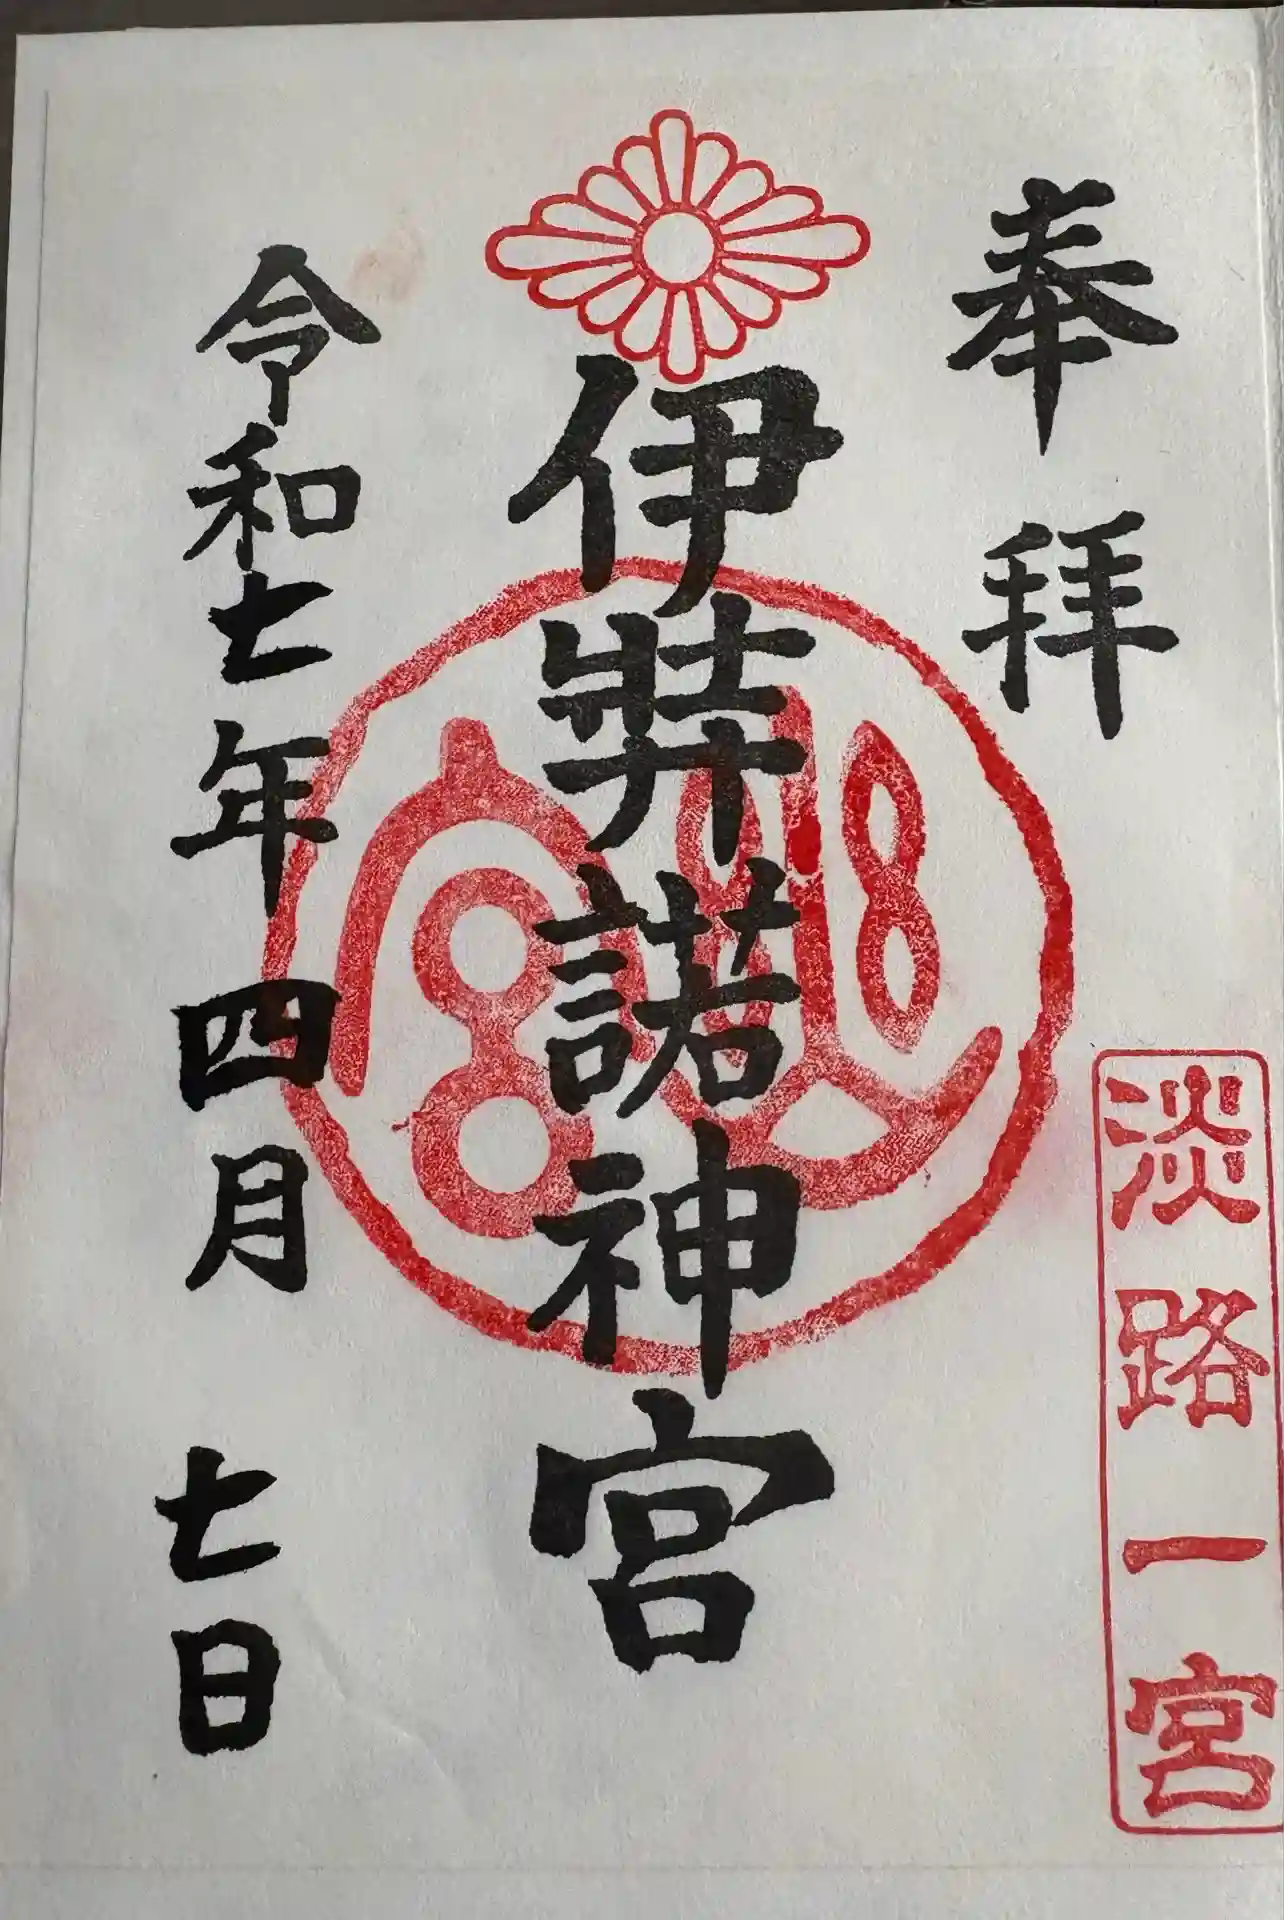 奉拝
淡路一宮
伊弉諾神宮
令和七年四月七日